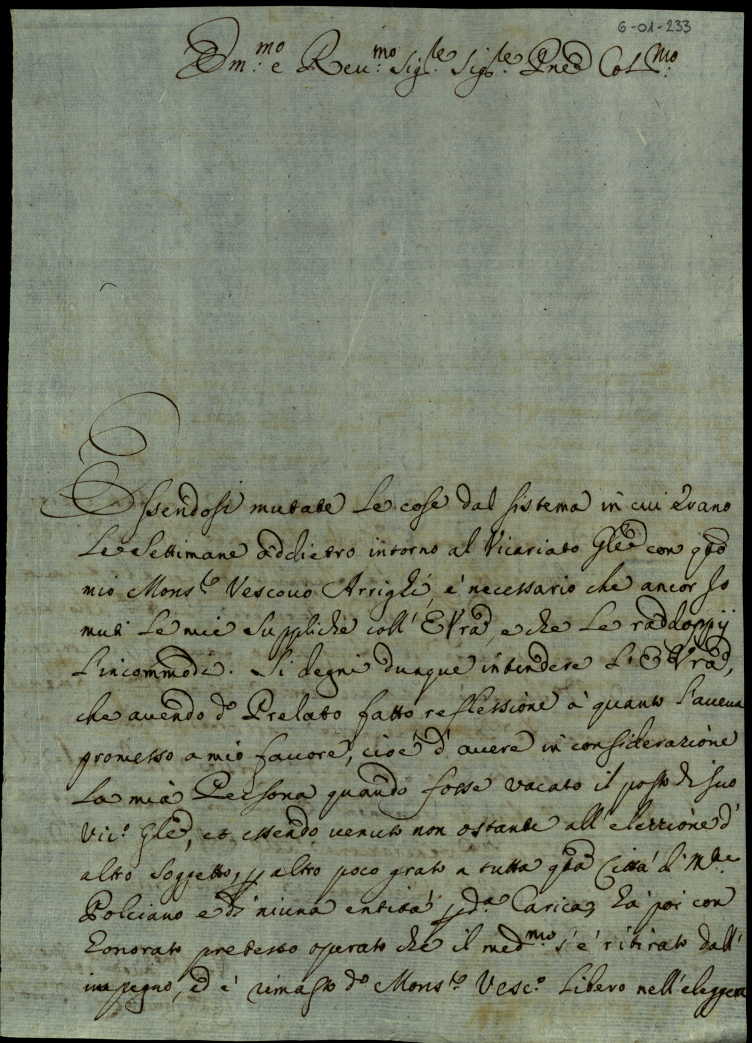 6-01-233
Em.mo e Reu.mo Sig.re Sig.re Pne Col.mo
Essendosi mutate le cose dal sistema in cui erano
le Settimane addietro intorno al Vicariato Gle con qto
mio Mons.re Vescouo Arrighi, e' necessario che ancor Io
muti le mie Suppliche coll' E Vra, e che le raddoppij
l'incommodi. Si degni dunque intendere l' E Vra,
che auendo do Prelato fatto reflessione à quanto l'aueua
promesso a mio fauore, cioe' d' auere in considerazione
la mia Persona quando fosse vacato il posto di suo
Vic.o Gle, et essendo venuto non ostante all' elezzione d'
altro Soggetto, p altro poco grato a tutta qta Città di M.te
Polciano e di niuna entità p da Carica, hà poi con
honorato pretesto operato che il med.mo s' e' ritirato dall'
impegno, ed e' rimasto do Mons.re Vesc.o libero nell' eleggere